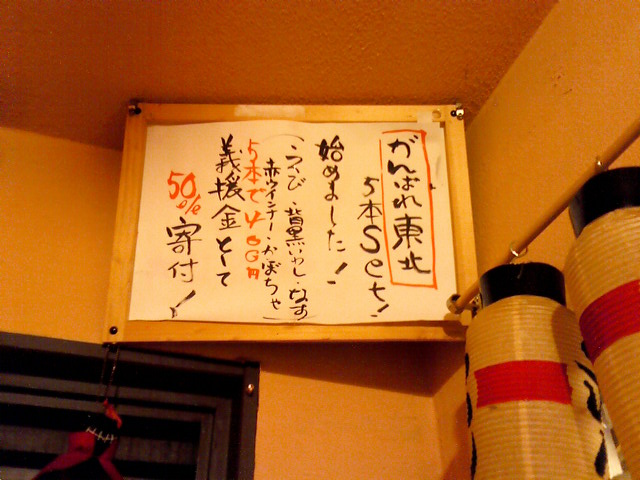 がんばれ東北
5本Set!
始めました!
(えび・背黒いわし・なす
赤ウインナー・かぼちゃ)
5本で400円
義援金として
50%寄付!